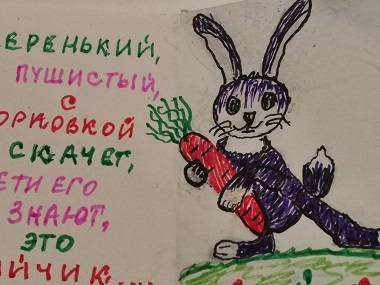 ЕРЕНЬКИЙ,
ПУШИСТЫЙ,
С
ОРКОВКОЙ
СКАЧЕТ,
ЕТИ ЕГО
ЗНАЮТ,
ЭТО
АЙЧИК....